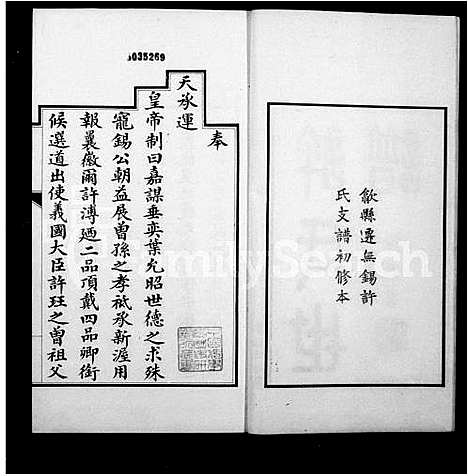 0035269
歙縣遷無錫許
氏支譜初修本
奉
天承運
皇帝制曰嘉謀垂奕葉允昭世德之求殊
寵錫公朝益展曾孫之孝祗承新渥用
報曩徽爾許溥廼二品頂戴四品卿銜
候選道出使義國大臣許珏之曾祖父
FamilySearch